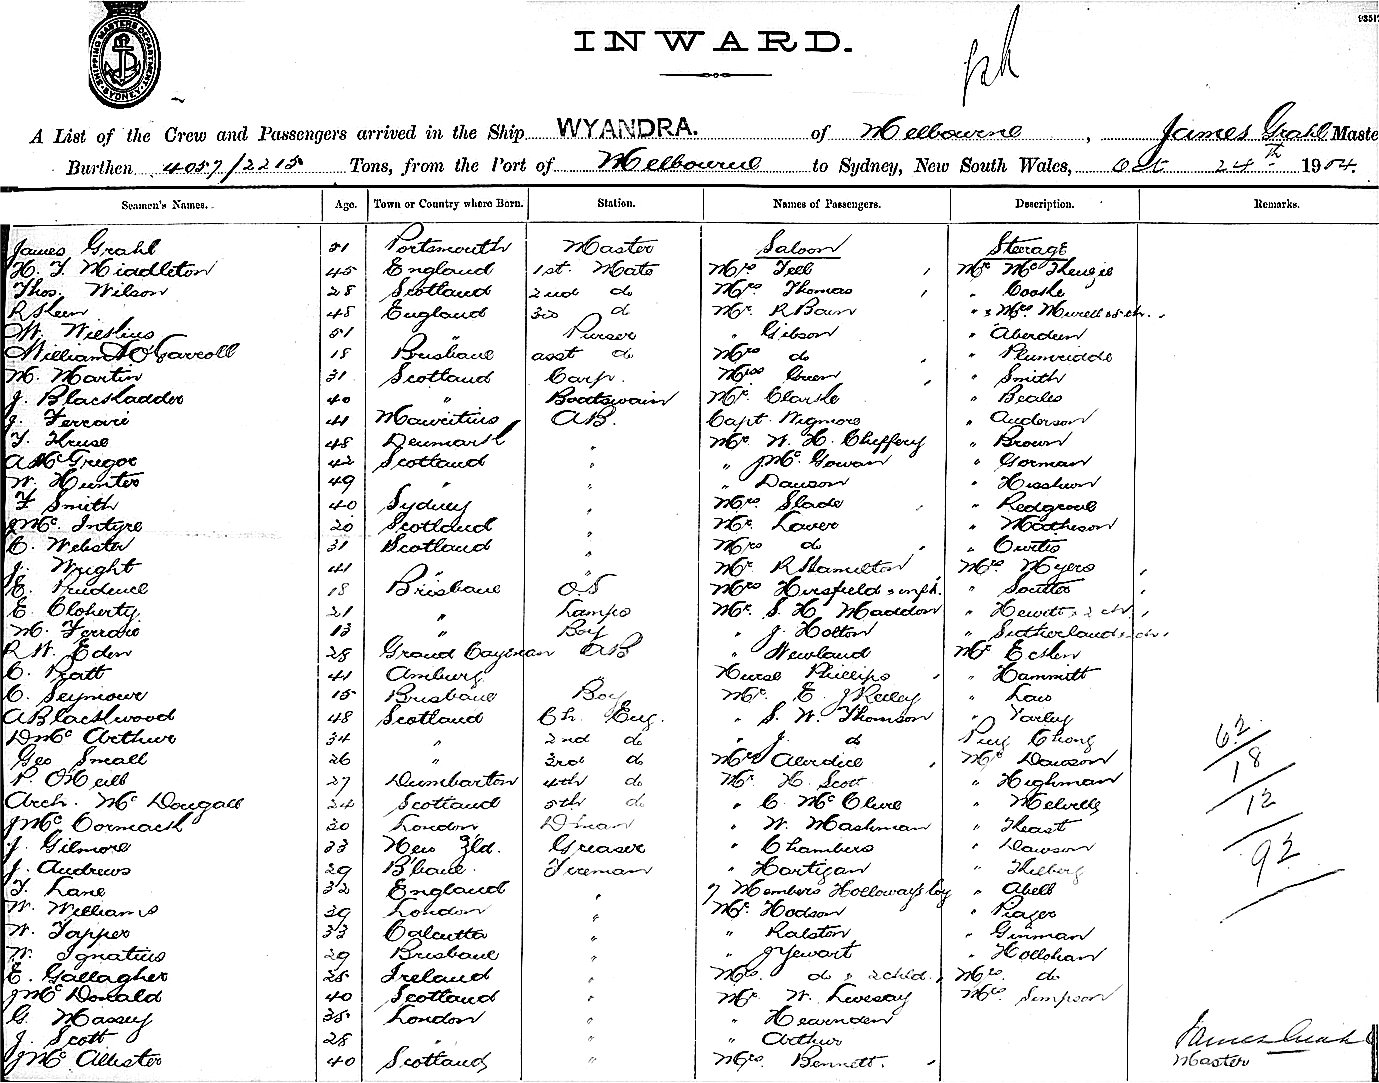 SHIPPING MASTERS DEPARTMENT SYDNEY
INWARD.
A List of the Crew and Passengers arrived in the Ship WYANDRA. of Melbourne, James Grahl Maste
Burthen 4057/2215 Tons, from the Port of Melbourne to Sydney, New South Wales, Oct 24th 1904.
Seamen's Names. Age. Town or Country where Born. Station. Names of Passengers. Description. Remarks.
James Grahl 51 Portsmouth Master Saloon Steerage
H. T. Middleton 45 England 1st. Mate Mrs Tell Mr
Thos. Wilson 28 Scotland 2nd do Mrs Thomas " Cooke
R Sheen 48 England 3rd d Mr. R Bain " & Mrs
W. 51 " Purser " Gibson " Aberdeen
William O'Carroll 18 Brisbane asst do Mrs do " Plumridde
M. Martin 31 Scotland Carp. Miss Green " Smith
J. Blackadder 40 " Boatswain Mr. Clarke " Beales
J. Ferrari 41 Mauritius AB. Capt. Wigmore " Anderson
T. Kruse 48 Denmark " Mr. W. H. Cheffery " Brown
A McGregor 42 Scotland " " J Mc. Gowan " Gorman
W. Hunter 49 " " " Dawson "
F. Smith 40 Sydney " Mrs Slade " Redgrove
J Mc. Intyre 20 Scotland " Mr. Laver " Matheson
C. Webster 31 Scotland " Mrs do " Curtis
J. Wright 41 " " Mr. R Hamilton Mrs. Myers
E. Prudence 18 Brisbane OS Mrs Hirsfield & inft. " Soutter
E. Cloherty 21 " Lamps Mr. S. H. Maddon " Hewitt, 2 ch
M. Ferrari 13 " Boy " J. Holton " Sutherland
R W. Eden 28 Grand Cayman AB " Newland Mr
C. Pratt 41 Amburg Nurse Phillips " Hammitt
C. Seymour 15 Brisbane Boy Mr. E. J Reiley " Law
A Blackwood 48 Scotland Ch. Eng. " S. W. Thomson " Varley
D Mc Arthur 34 " 2nd do " J. do Chong
Geo Small 26 " 3rd do Mrs Alerdice Mr. Dawson 62
P. O'Neill 27 Dumbarton 4th do Mr. H. Scott " Highman 18
Arch. Mc Dougall 24 Scotland 5th do " C. Mc Clure " Melville 12
J Mc Cormack 30 London Dman " W. Mashman " Theast
J. Gilmore 33 New Zld. Greaser " Chambers " Dawson 92
J. Andrews 29 B'bane. Fireman " Hartigan "
T. Lane 32 England " 7 Members Holloways Coy " Abell
W. Williams 39 London " Mr. Hodson "
W. Tapper 33 Calcutta " " Ralston " Ginman
W. Ignatius 29 Brisbane " " J Yewart " Hollohan
E. Gallagher 25 Ireland " Mrs. do & 2 child. Mrs. do
J Mc Donald 40 Scotland " Mr W. Livesay Mrs Simpson
G. Massey 35 London " " Hearnden
J. Scott 28 " " " Arthur James Grahl
J Mc Allister 40 Scotland " Mrs. Bennett. Master